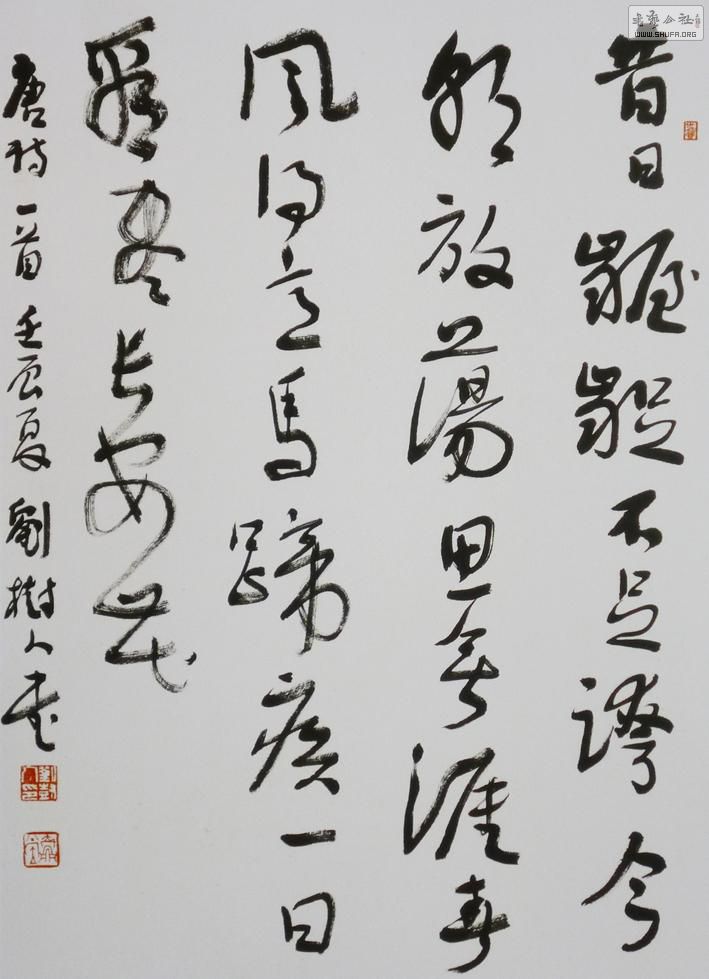 昔日齷齪不足誇今
朝放蕩思無涯春
風得意馬蹄疾一日
看盡長安花
唐詩一首壬辰夏劉樹人書
書藝公社
WWW.SHUFA.ORG